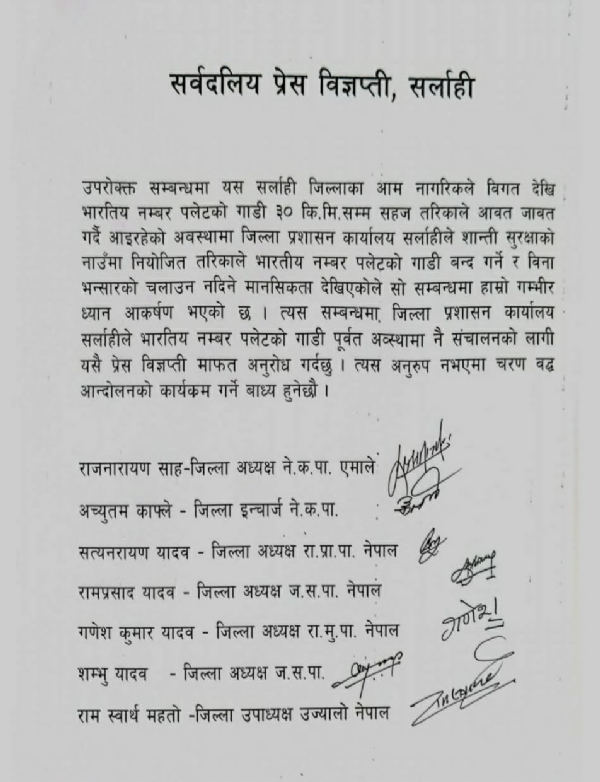 सर्वदलिय प्रेस विज्ञप्ती, सर्लाही
उपरोक्त सम्बन्धमा यस सर्लाही जिल्लाका आम नागरिकले विगत देखि
भारतिय नम्बर पलेटको गाडी ३० कि.मि.सम्म सहज तरिकाले आवत जावत
गर्दै आइरहेको अवस्थामा जिल्ला प्रशासन कार्यालय सर्लाहीले शान्ती सुरक्षाको
नाउँमा नियोजित तरिकाले भारतीय नम्बर पलेटको गाडी बन्द गर्ने र विना
भन्सारको चलाउन नदिने मानसिकता देखिएकोले सो सम्बन्धमा हाम्रो गम्भीर
ध्यान आकर्षण भएको छ । त्यस सम्बन्धमा, जिल्ला प्रशासन कार्यालय
सर्लाहीले भारतिय नम्बर पलेटको गाडी पूर्वत अवस्थामा नै संचालनको लागी
यसै प्रेस विज्ञप्ती माफत अनुरोध गर्दछु । त्यस अनुरुप नभएमा चरण वद्ध
आन्दोलनको कार्यकम गर्ने बाध्य हुनेछौ ।
राजनारायण साह-जिल्ला अध्यक्ष ने.क.पा. एमाले
अच्युतम काफ्ले - जिल्ला इन्चार्ज ने.क.पा. :
सत्यनरायण यादव - जिल्ला अध्यक्ष रा.प्रा.पा. नेपाल
रामप्रसाद यादव - जिल्ला अध्यक्ष ज.स.पा. नेपाल
गणेश कुमार यादव - जिल्ला अध्यक्ष रा.मु.पा. नेपाल गणेश
शम्भु यादव - जिल्ला अध्यक्ष ज.स.पा.
राम स्वार्थ महतो -जिल्ला उपाध्यक्ष उज्यालो नेपाल